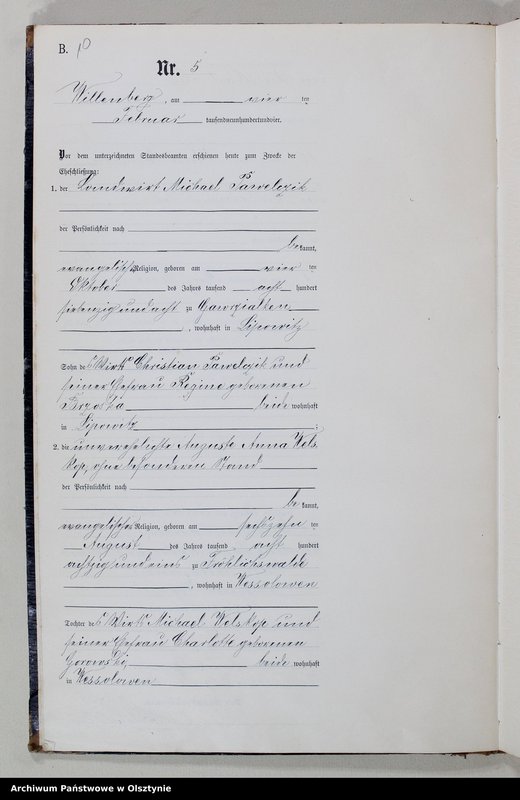 B. 10
Nr. 5
Willenberg, am vier ten
Februar tausendneunhundertundvier.
Vor dem unterzeichneten Standesbeamten erschienen heute zum Zwecke der
Eheschließung:
1. der Landwirt Michael Pawelzik
der Persönlichkeit nach
be kannt,
evangelischer Religion, geboren am vier ten
Oktober des Jahres tausend acht hundert
siebenzig und acht zu Gawrzialken
, wohnhaft in Lipowitz
Sohn des Wirts Christian Pawelzik und
seiner Ehefrau Regine geborenen
Brzoska beide wohnhaft
in Lipowitz ;
2. die unverehelichte Auguste Anna Wels
kop, ohne besonderen Stand
der Persönlichkeit nach
be kannt,
evangelischer Religion, geboren am sechszehn ten
August des Jahres tausend acht hundert
achtzig und eins zu Fröhlichswalde
, wohnhaft in Wessolowen
Tochter des Wirts Michael Welskop und
seiner Ehefrau Charlotte geborenen
beide wohnhaft
in Wessolowen
Archiwum Państwowe w Olsztynie